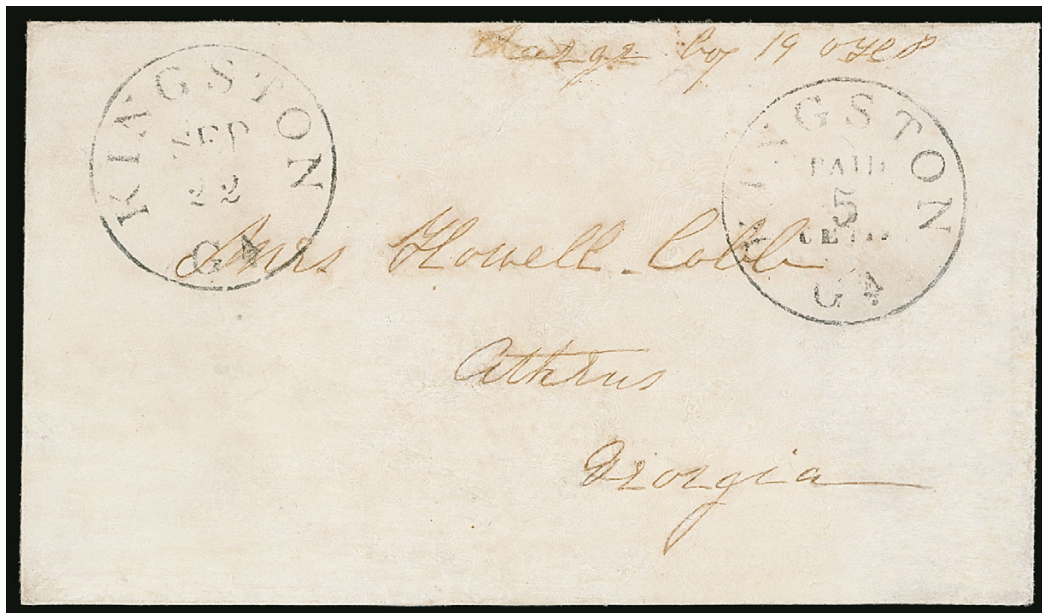 Charge Box 19
KINGSTON
SEP
22
GA
KINGSTON
PAID
5
CENTS
GA
Mrs Howell Cobb
Athens
Georgia